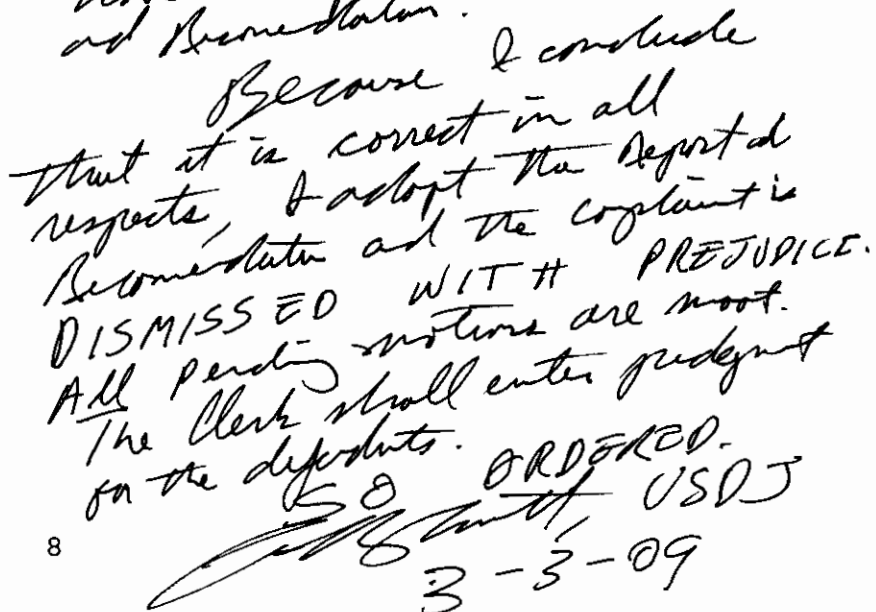 and Recommendation.
Because I conclude
that it is correct in all
respects, I adopt the Report and
Recommendation and the complaint is
DISMISSED WITH PREJUDICE.
All pending motions are moot.
The Clerk shall enter judgment
for the defendants.
SO ORDERED.
USDJ
8
3-3-09